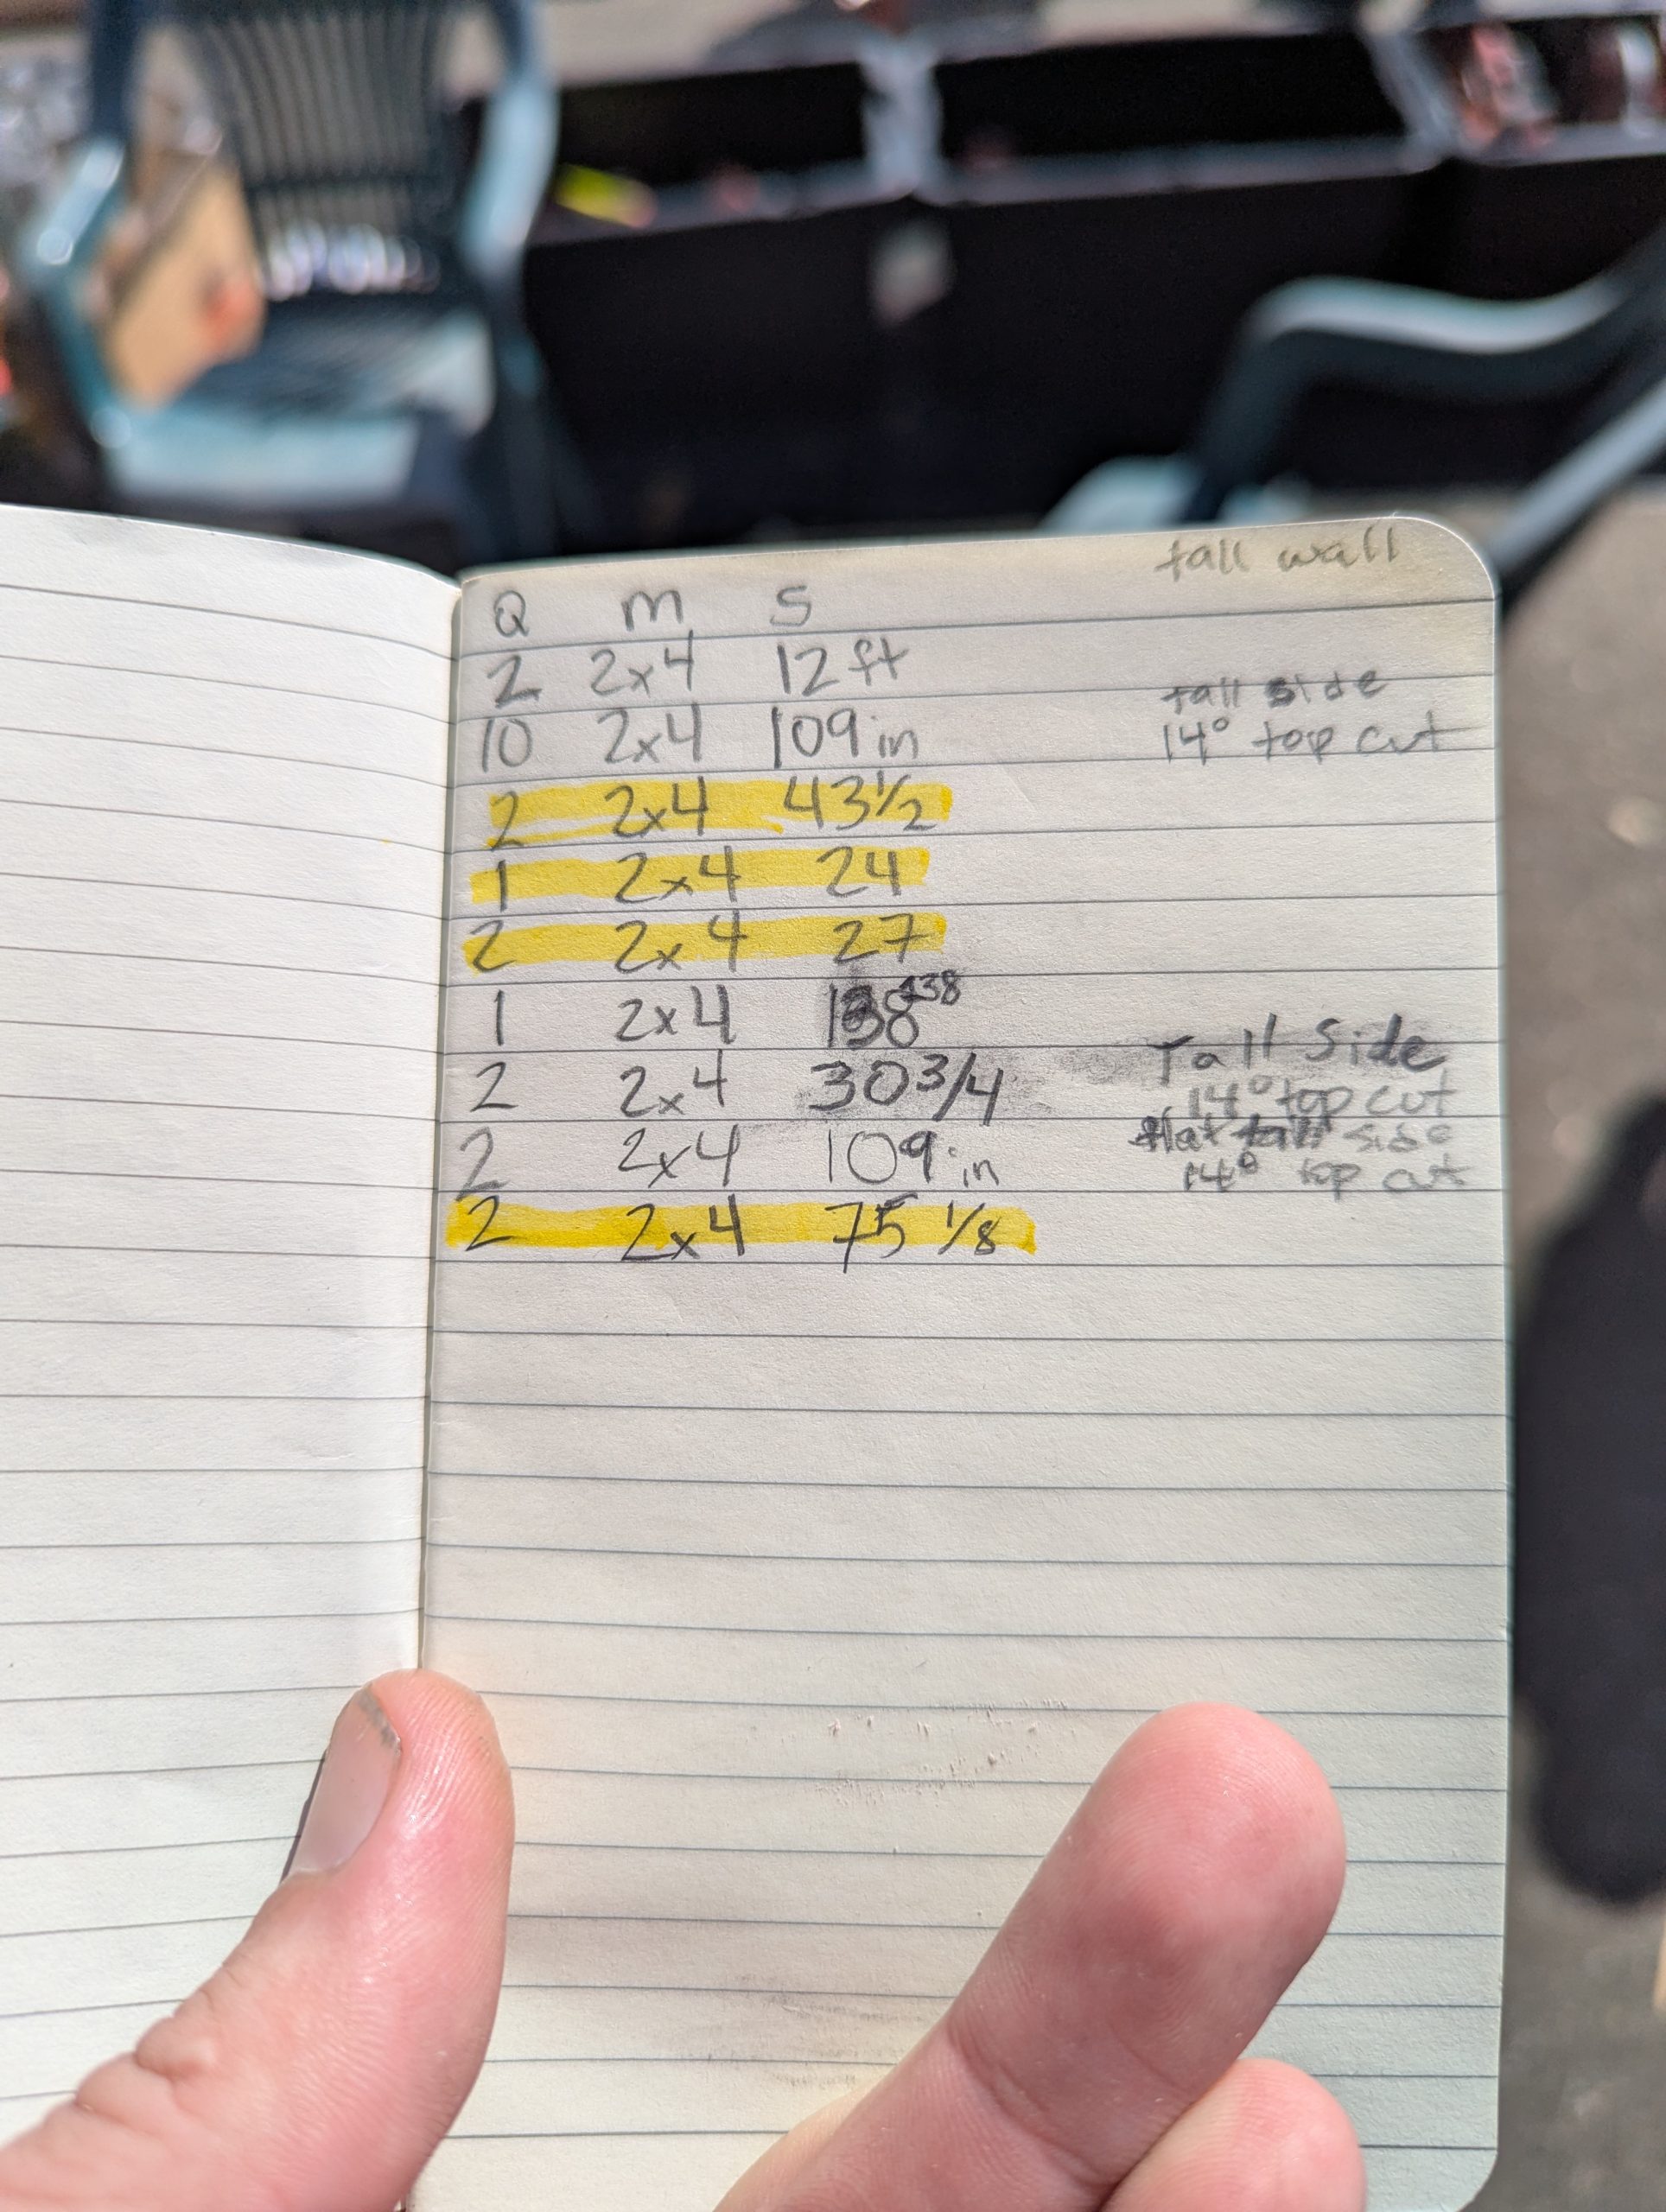 tall wall
Q m S
2 2x4 12 ft
tall side
10 2x4 109 in 14° top cut
2 2x4 43 1/2
1 2x4 24
2 2x4 27
1 2x4 138
Tall Side
2 2x4 30 3/4 14° top cut
flat tall side
2 2x4 109 in 14° top cut
2 2x4 75 1/8